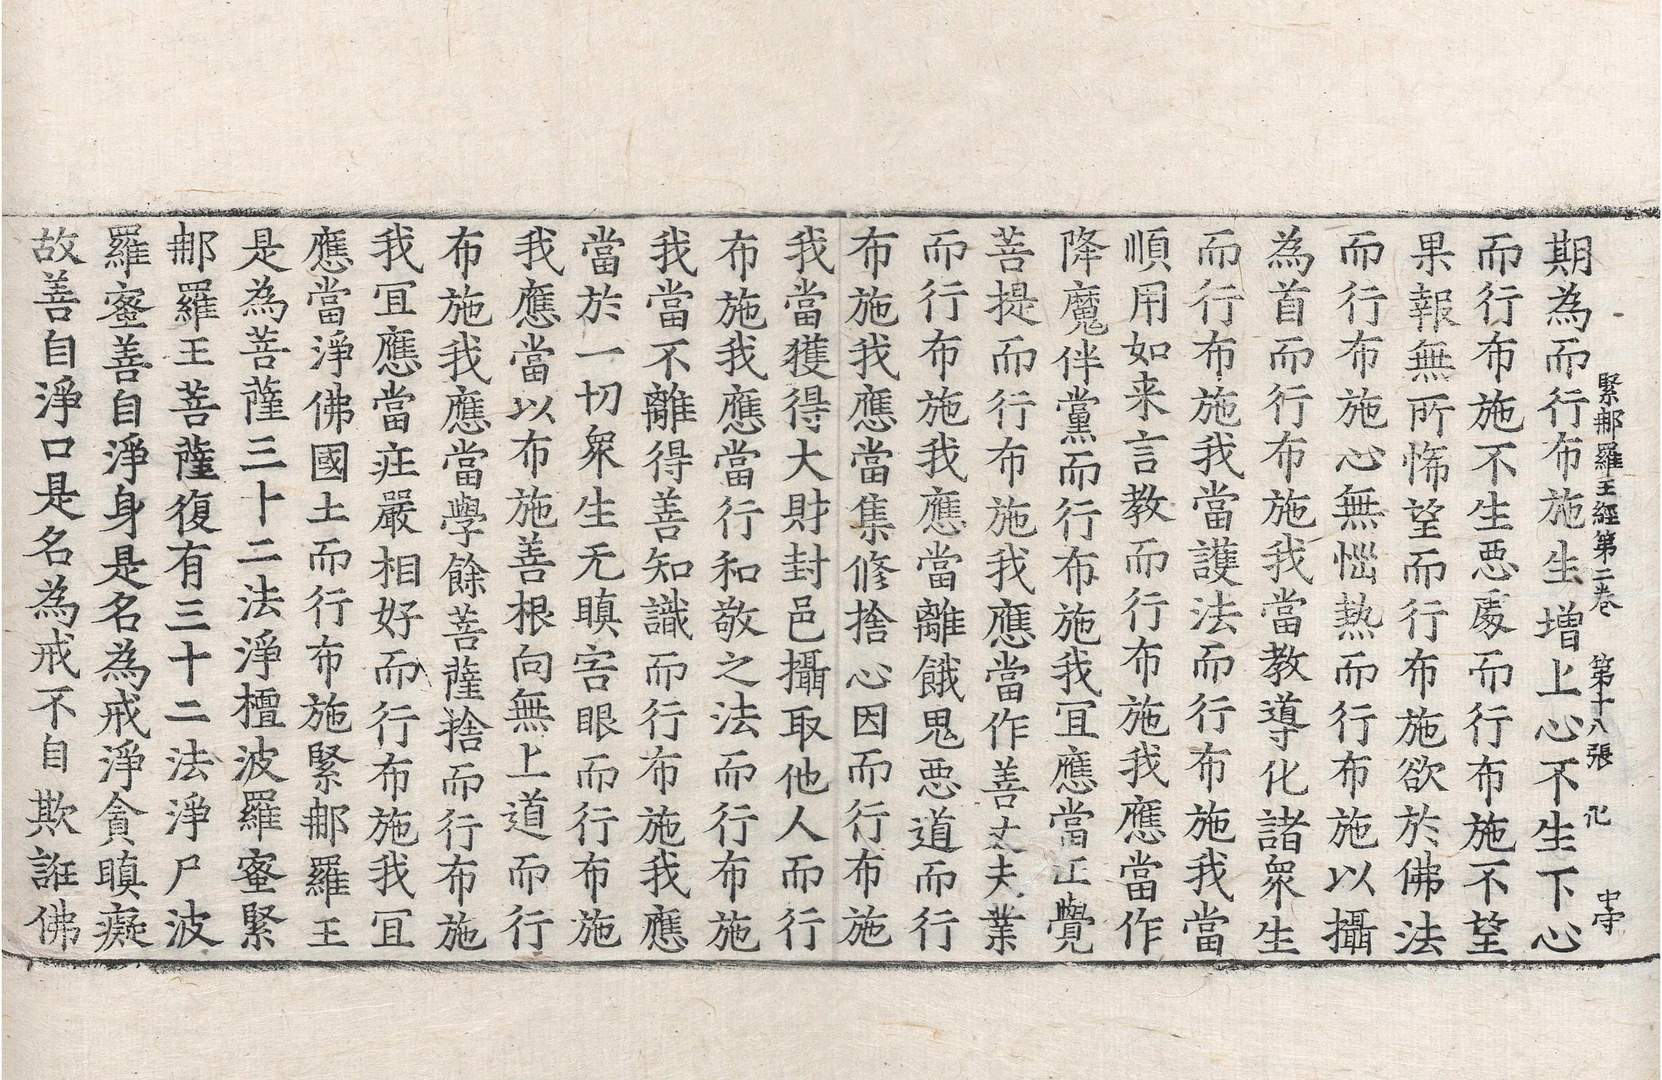 緊那羅王經第二卷　第十八張　𡖉　中守
期為而行布施生增上心不生下心
而行布施不生悪處而行布施不望
果報無所悕望而行布施欲於佛法
而行布施心無惱熱而行布施以攝
為首而行布施我當教導化諸衆生
而行布施我當護法而行布施我當
順用如来言教而行布施我應當作
降魔伴黨而行布施我冝應當正覺
菩提而行布施我應當作善丈夫業
而行布施我應當離餓鬼悪道而行
布施我應當集修捨心因而行布施
我當獲得大財封邑攝取他人而行
布施我應當行和敬之法而行布施
我當不離得善知識而行布施我應
當於一切衆生无瞋害眼而行布施
我應當以布施善根向無上道而行
布施我應當學餘菩薩捨而行布施
我冝應當庄嚴相好而行布施我冝
應當淨佛國土而行布施緊那羅王
是為菩薩三十二法淨檀波羅蜜緊
那羅王菩薩復有三十二法淨尸波
羅蜜善自淨身是名為戒淨貪瞋癡
故善自淨口是名為戒不自欺誑佛